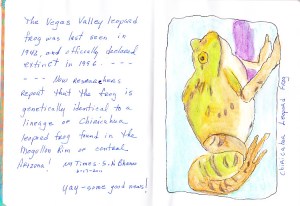 The Vegas Valley leopard
frog was last seen in
1942, and officially declared
extinct in 1996. ---
--- Now researchers
report that the frog is
genetically identical to a
lineage of Chiricahua
leopard frog found in the
Mogollon Rim of central
Arizona!
NY Times
Yay - some good news!
Chiricahua Leopard Frog